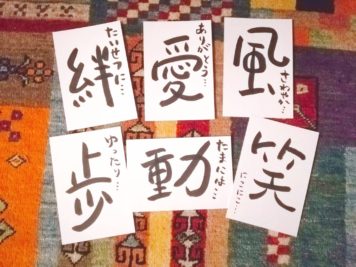 たいせつに…
絆
ありがとう…
愛
さわやか…
風
ゆったり…
歩
たまには…
動
にこにこ…
笑